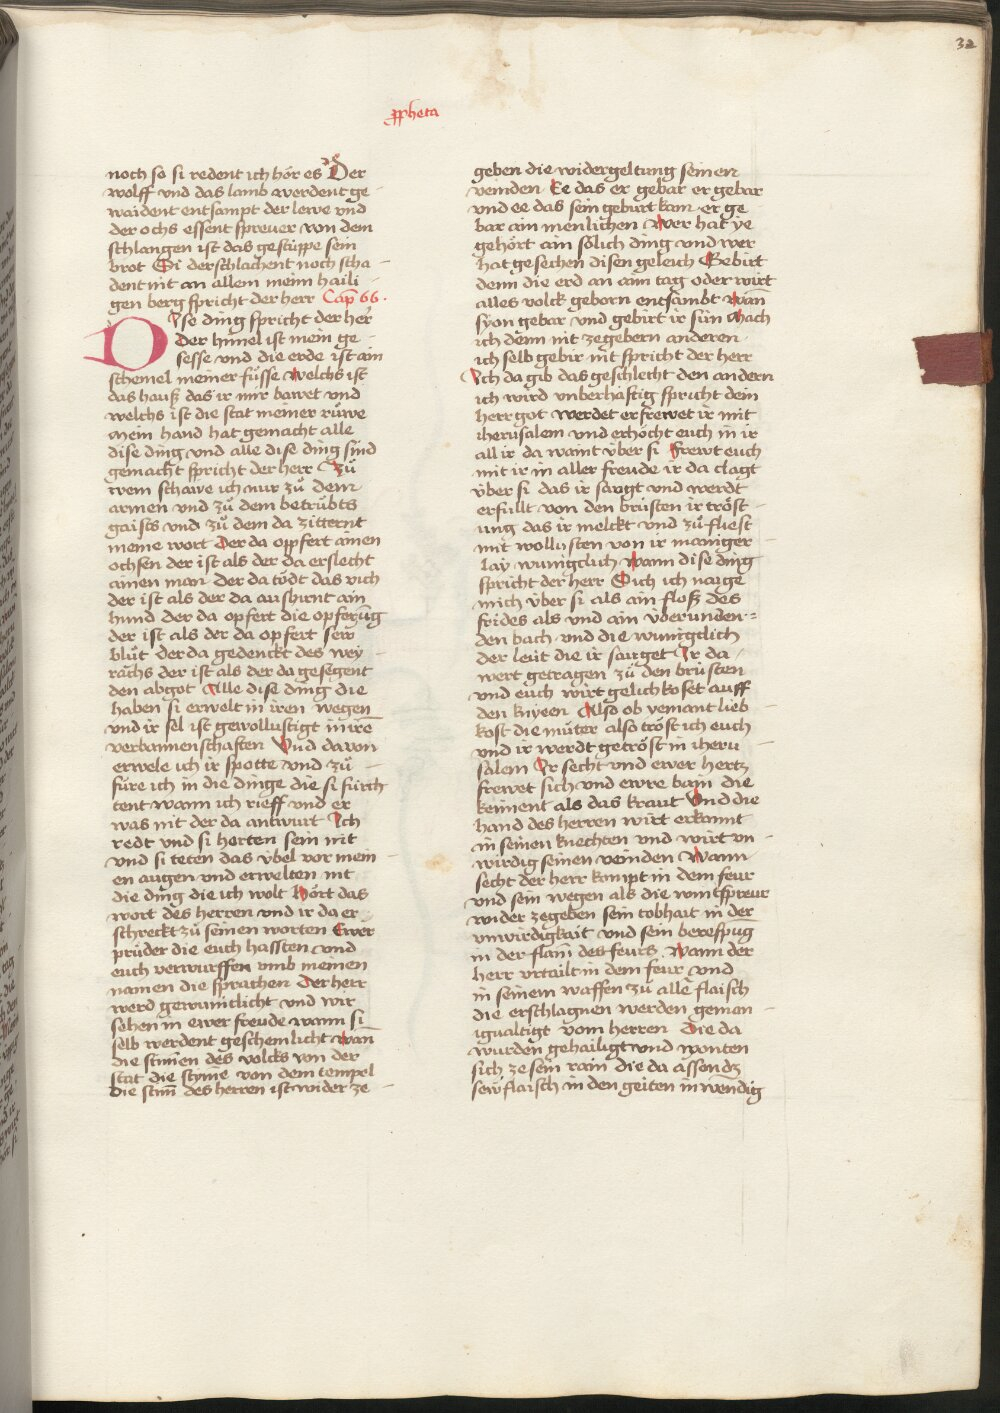 32
ꝓpheta
noch so si redent ich hör es Der
wolff vnd das lamb werdent ge
waident entsampt der lewe vnd
der ochs essent sprewer von dem
schlangen ist das gestüppe sein
brot Si derschlachent noch scha
dent nit an allem meim haili
gen berg spricht der herr Cap̄ 66.
Dise ding spricht der her̄
Der himel ist mein ge
sesse vnd die erde ist ain
schemel meiner fu̇sse welchs ist
das hauß das ir mir bawet vnd
welchs ist die stat meiner ru̇we
mein hand hat gemacht alle
dise ding vnd alle dise ding sind
gemacht spricht der herr Zů
wem schawe ich nur zů dem
armen vnd zů dem betrübts
gaists vnd zů dem da zitternt
meine wort Der da oppfert ainen
ochsen der ist als der da erslecht
ainen man der da tödt das vich
der ist als der da aushirnt ain
hund der da opfert die opferūg
der ist als der da opfert sew
blůt der da gedenckt des wey
rachs der ist als der da gesegent
den abgot Alle dise ding die
haben si erwelt in iren wegen
vnd ir sel ist gewollustigt in irē
verbannenschaften Vnd davon
erwele ich ir spotte vnd zů
füre ich in die dinge die si fürch
tent wann ich rieff vnd er
was nit der da antwurt Ich
redt vnd si horten sein nit
vnd si teten das ybel vor mein
en augen vnd erwelten nit
die ding die ich wolt Hört das
wort des herren vnd ir da er
schreckt zů seinen worten Ewer
prüder die euch hassten vnd
euch verwurffen vmb meinen
namen die sprachen Der herr
werd gewuntlicht vnd wir
sehen in ewer freude wann si
selb werdent geschemlicht wan̄
die stim̄en des volcks von der
stat die stym̄e von dem tempel
die stim̄ des herren ist wider ze
geben die widergeltung seinen
veinden Ee das er gebar er gebar
vnd ee das sein geburt kam er ge
bar ain menlichen Wer hat ye
gehört ain sölich ding vnd wer
hat gesechen disen geleich Gebirt
denn die erd an aim tag oder wirt
alles volck geborn entsambt wan̄
syon gebar vnd gebirt ir sün Mach
ich denn nit ze gebern anderen
ich selb gebir nit spricht der herr
Ich da gib das geschlecht den andern
ich wird vnberhaftig spricht dein
herr got werdet erfrewet ir mit
iherusalem vnd erhöcht euch in ir
all ir da waint yber si Frewt euch
mit ir in aller freude ir da clagt
yber si das ir saugt vnd werdt
erfullt von den brüsten ir tröst
ung das ir melckt vnd zů fliest
mit wollusten von ir maniger
lay wunigclich Wann dise ding
spricht der herr Sich ich naige
mich yber si als ain floß des
frides als vnd ain vberunden=
den bach vnd die wunigclich
der leüt die ir sauget Ir da
wert getragen zů den brüsten
vnd euch wirt gelich koset auff
den knyeen Also ob yemant lieb
kost die můter also tröst ich euch
vnd ir werdt getröst in iheru
salem Ir secht vnd ewer hertz
frewet sich vnd ewre bain die
keinent als das kraut Vnd die
hand des herren wirt erkannt
in seinen knechten vnd wirt vn
wirdig seinen veinden Wann
secht der herr kompt in dem feur
vnd sein wegen als die wintspreur
wider zegeben sein tobhait in der
vnwirdigkait vnd sein berespūg
in der flam̄ des feurs Wann der
herr vrtailt in dem feur vnd
in seinem waffen zů alle flaisch
die erschlagnen werden geman
igualtigt vom herren Die da
wurden gehailigt vnd wonten
sich ze sein rain die da assond
sew flaisch in den geiten inwendig